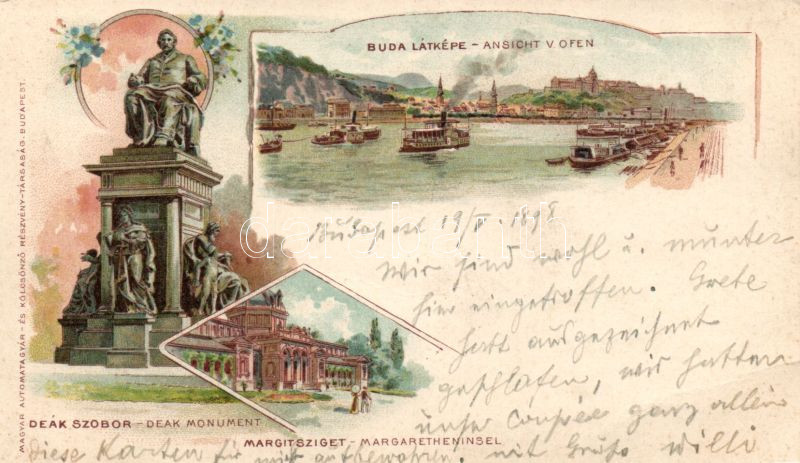 BUDA LÁTKÉPE - ANSICHT V. OFEN
MAGYAR AUTOMATAGYÁR- ÉS KÖLCSÖNZŐ RÉSZVÉNY-TÁRSASÁG. BUDAPEST.
Budapest 19/V. 1898
Wir sind wohl u. munter
hier eingetroffen. Grete
hatt ausgezeichnet
geschlafen, wir hatten
unser Coupée ganz allein
DEÁK SZOBOR - DEAK MONUMENT
MARGITSZIGET - MARGARETHENINSEL
diese Karten für mich aufbewahren. mit Gruss Willi